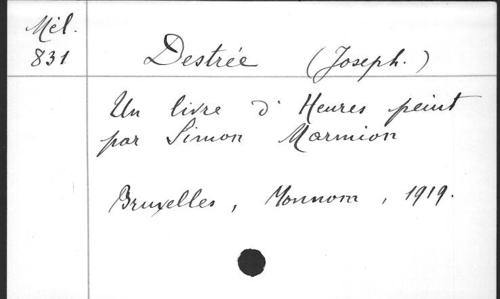 Mél.
831
Destrée (Joseph.)
Un livre d'Heures peint
par Simon Marmion
Bruxelles, Monnom, 1919.